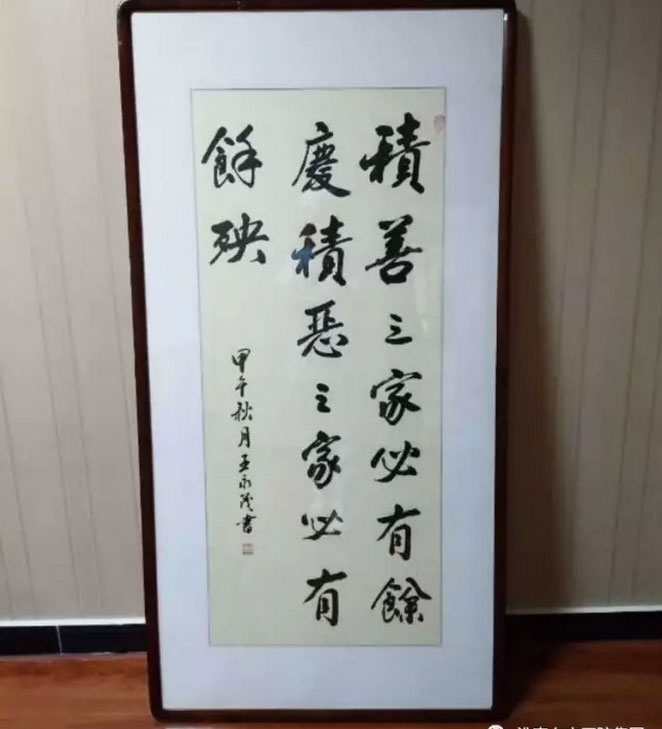 積善之家必有餘
慶積惡之家必有
餘殃
甲午秋月王永茂書